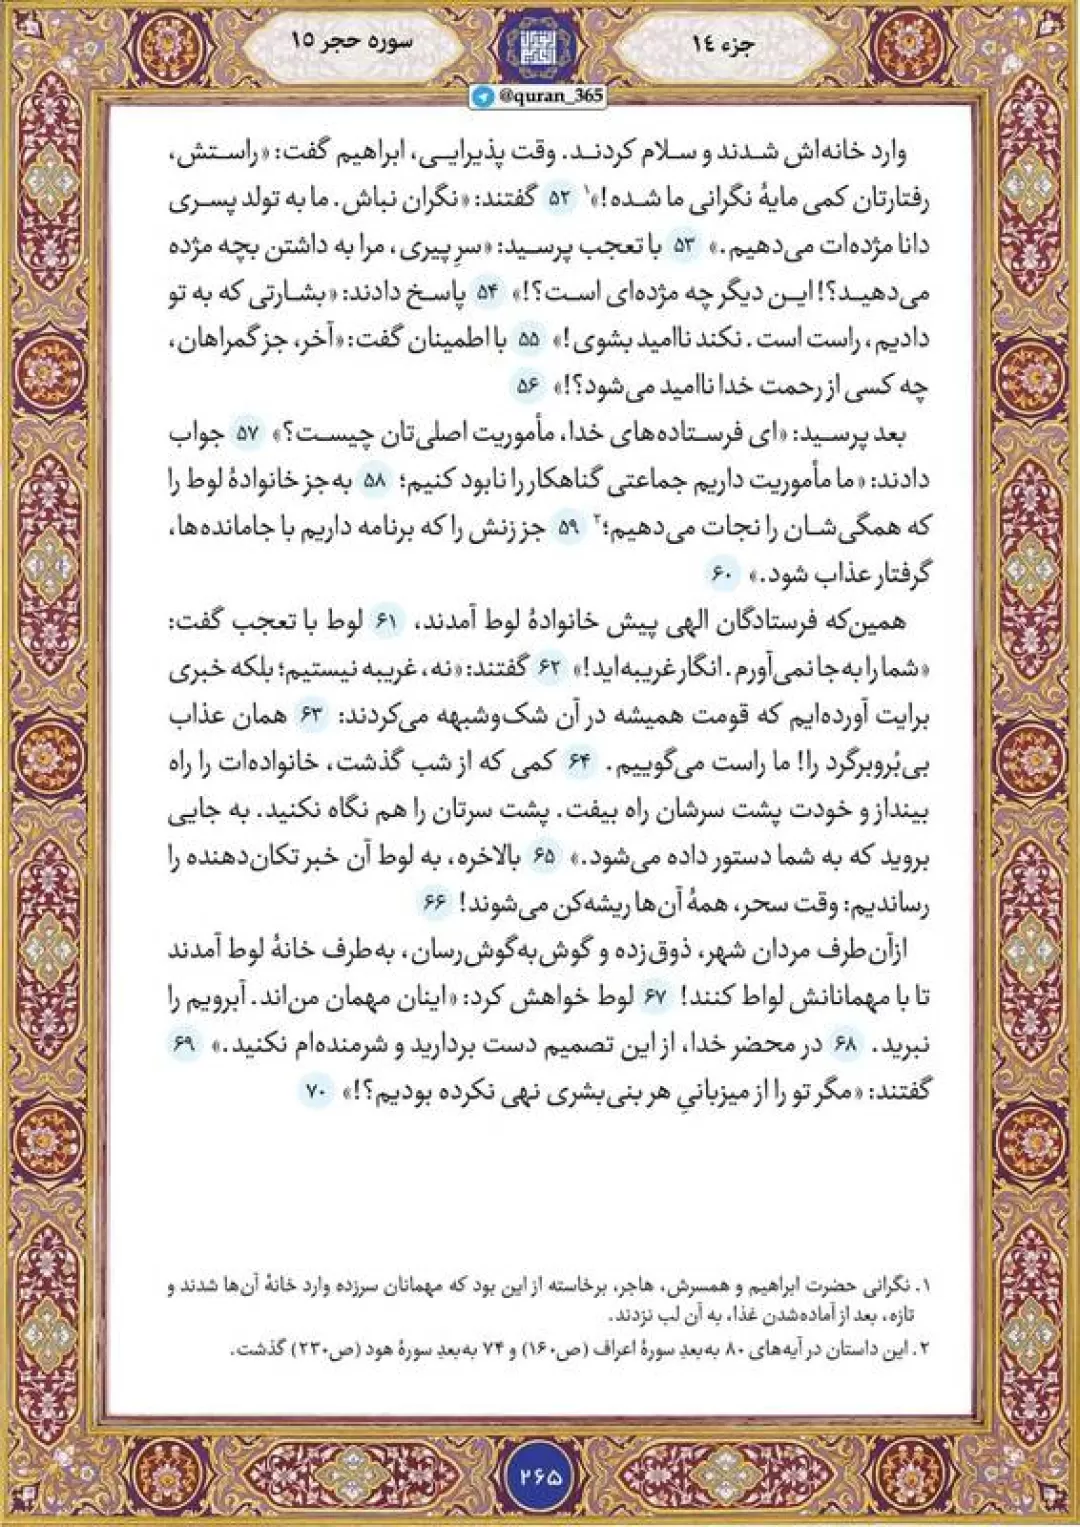 جزء ١٤
سوره حجر ١٥
@quran_365
وارد خانه‌اش شدند و سلام کردند. وقت پذیرایی، ابراهیم گفت: «راستش،
رفتارتان کمی مایهٔ نگرانی ما شده!»۱ ۵۲ گفتند: «نگران نباش. ما به تولد پسری
دانا مژده‌ات می‌دهیم.» ۵۳ با تعجب پرسید: «سرِ پیری، مرا به داشتن بچه مژده
می‌دهید؟! این دیگر چه مژده‌ای است؟!» ۵۴ پاسخ دادند: «بشارتی که به تو
دادیم، راست است. نکند ناامید بشوی!» ۵۵ با اطمینان گفت: «آخر، جز گمراهان،
چه کسی از رحمت خدا ناامید می‌شود؟!» ۵۶
بعد پرسید: «ای فرستاده‌های خدا، مأموریت اصلی‌تان چیست؟» ۵۷ جواب
دادند: «ما مأموریت داریم جماعتی گناهکار را نابود کنیم؛ ۵۸ به‌جز خانوادهٔ لوط را
که همگی‌شان را نجات می‌دهیم؛۲ ۵۹ جز زنش را که برنامه داریم با جامانده‌ها،
گرفتار عذاب شود.» ۶۰
همین‌که فرستادگان الهی پیش خانوادهٔ لوط آمدند، ۶۱ لوط با تعجب گفت:
«شما را به‌جا نمی‌آورم. انگار غریبه‌اید!» ۶۲ گفتند: «نه، غریبه نیستیم؛ بلکه خبری
برایت آورده‌ایم که قومت همیشه در آن شک‌وشبهه می‌کردند: ۶۳ همان عذاب
بی‌بُروبرگرد را! ما راست می‌گوییم. ۶۴ کمی که از شب گذشت، خانواده‌ات را راه
بینداز و خودت پشت سرشان راه بیفت. پشت سرتان را هم نگاه نکنید. به جایی
بروید که به شما دستور داده می‌شود.» ۶۵ بالاخره، به لوط آن خبر تکان‌دهنده را
رساندیم: وقت سحر، همهٔ آن‌ها ریشه‌کن می‌شوند! ۶۶
ازآن‌طرف مردان شهر، ذوق‌زده و گوش‌به‌گوش‌رسان، به‌طرف خانهٔ لوط آمدند
تا با مهمانانش لواط کنند! ۶۷ لوط خواهش کرد: «اینان مهمان من‌اند. آبرویم را
نبرید. ۶۸ در محضر خدا، از این تصمیم دست بردارید و شرمنده‌ام نکنید.» ۶۹
گفتند: «مگر تو را از میزبانیِ هر بنی‌بشری نهی نکرده بودیم؟!» ۷۰
۱. نگرانی حضرت ابراهیم و همسرش، هاجر، برخاسته از این بود که مهمانان سرزده وارد خانهٔ آن‌ها شدند و
تازه، بعد از آماده‌شدن غذا، به آن لب نزدند.
۲. این داستان در آیه‌های ۸۰ به‌بعدِ سورهٔ اعراف (ص۱۶۰) و ۷۴ به‌بعدِ سورهٔ هود (ص۲۳۰) گذشت.
۲۶۵